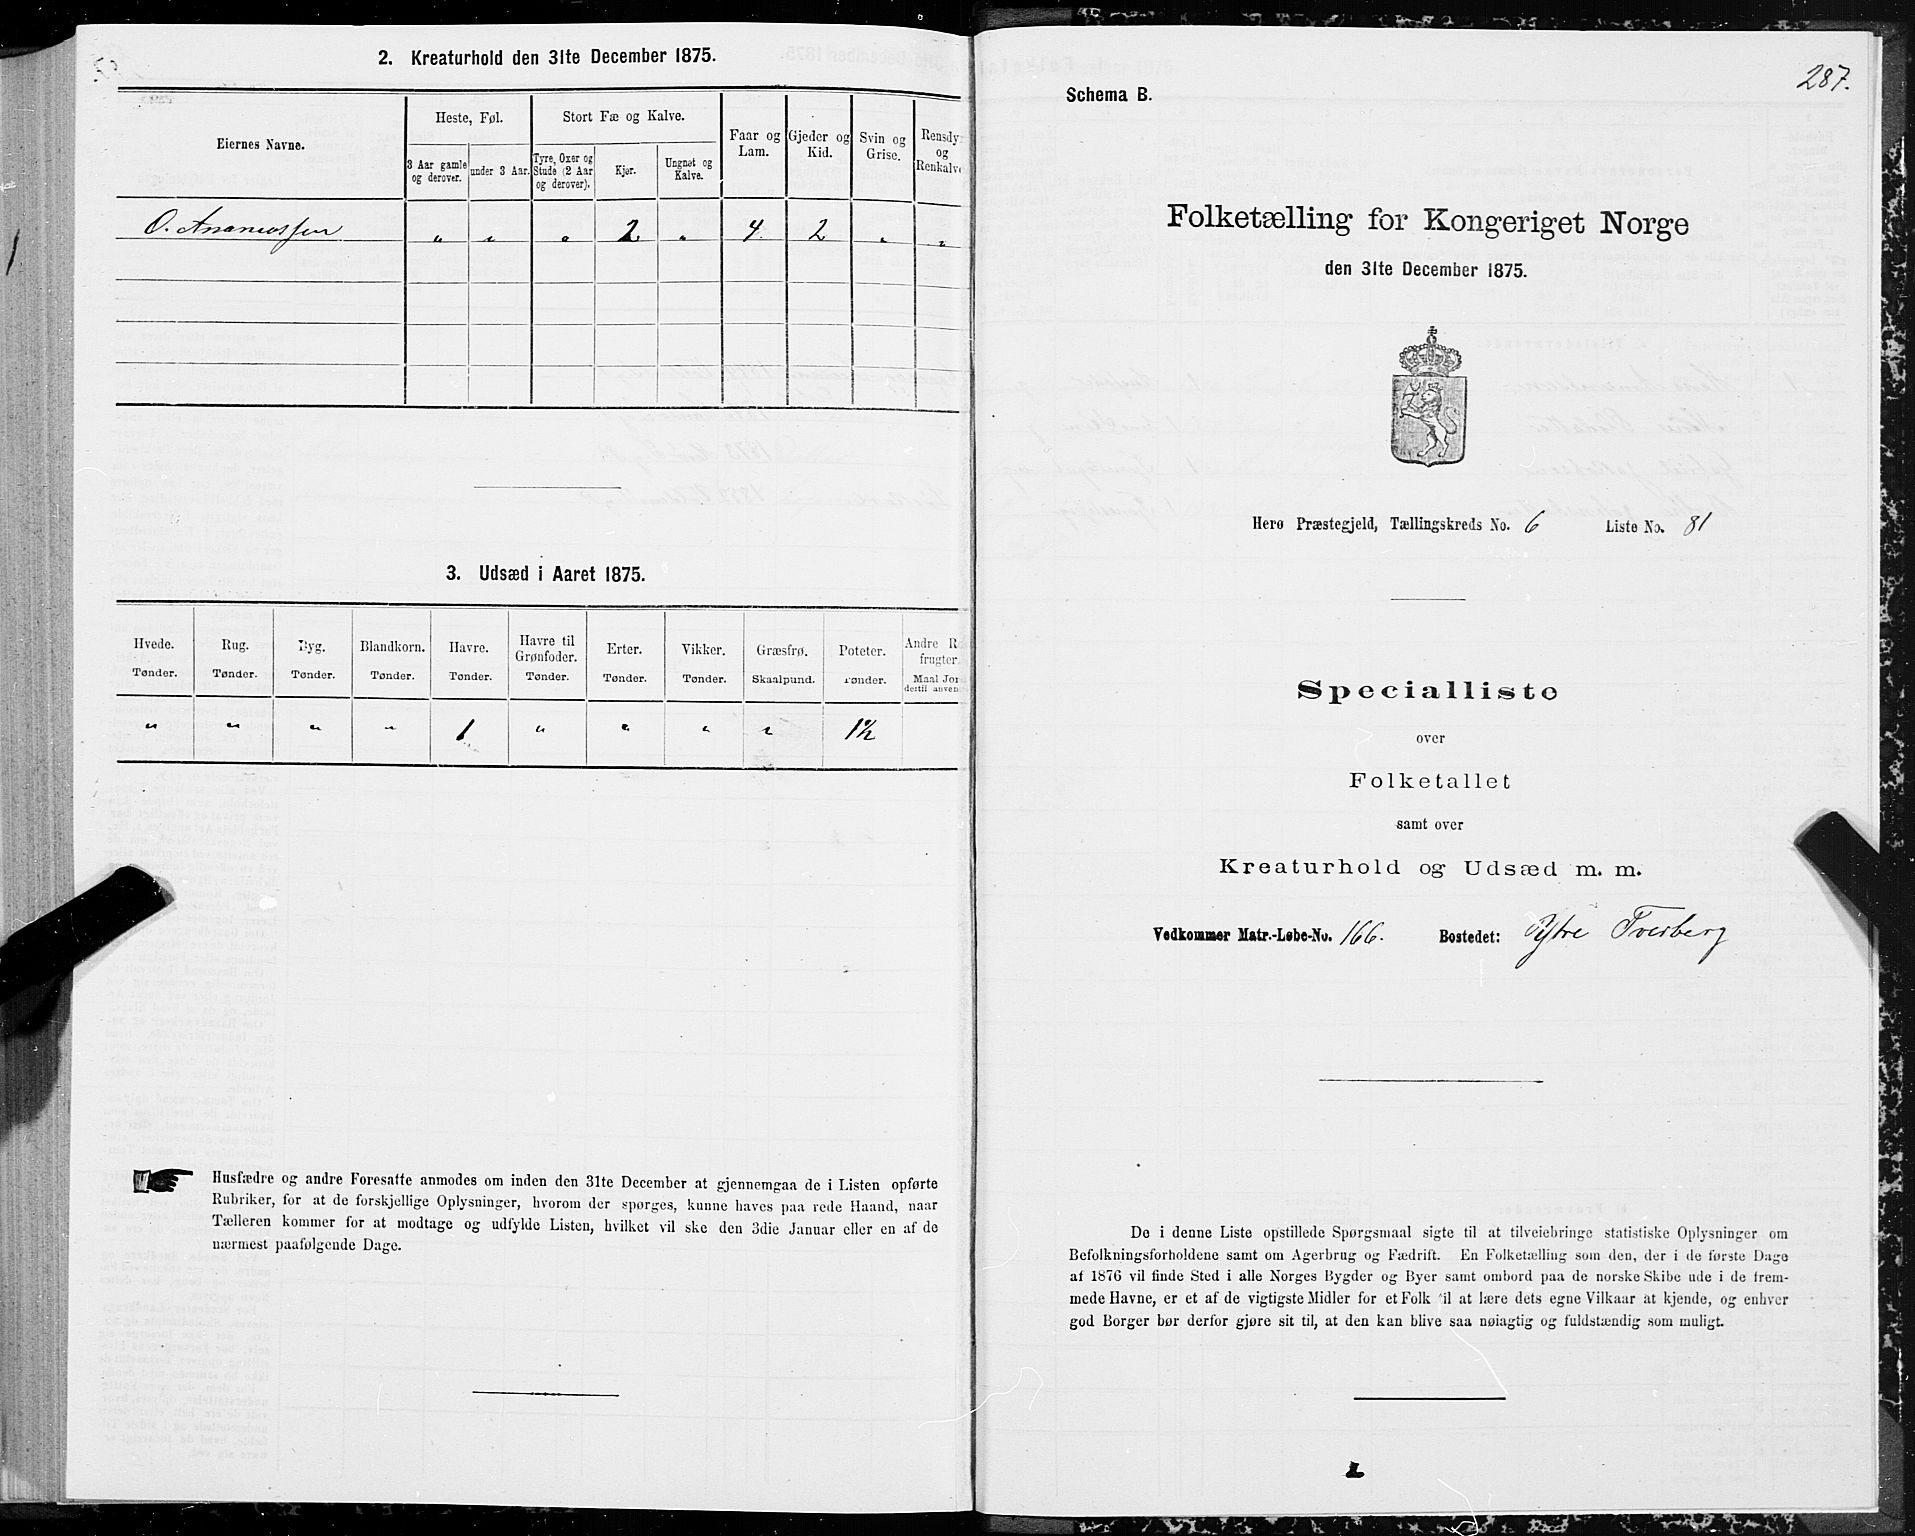 2. Kreaturhold den 31te December 1875.
Eiernes Navne.
Heste, Føl.
Stort Fæ og Kalve.
Faar og Lam.
Gjeder og Kid.
Svin og Grise.
Rensdy
og
Renkalve
3 Aar gamle og derover.
under 3 Aar.
Tyre, Oxer og Stude (2 Aar og derover).
Kjør.
Ungnøt og Kalve.
O. Ananiassen " " " 2 " 4 2 " "
3. Udsæd i Aaret 1875.
Hvede. Rug. Byg. Blandkorn. Havre. Havre til Grønfoder. Erter. Vikker. Græsfrø. Poteter. Andre R
frugter
Tønder. Tønder. Tønder. Tønder. Tønder. Tønder. Tønder. Tønder. Skaalpund. Tønder. Maal Jor
dertil anven
" " " " 1 " " " " 1½
Husfædre og andre Foresatte anmodes om inden den 31te December at gjennemgaa de i Listen opførte
Rubriker, for at de forskjellige Oplysninger, hvorom der spørges, kunne haves paa rede Haand, naar
Tælleren kommer for at modtage og udfylde Listen, hvilket vil ske den 3die Januar eller en af de
nærmest paafølgende Dage.
287.
Schema B.
Folketælling for Kongeriget Norge
den 31te December 1875.
Herø Præstegjeld, Tællingskreds No. 6 Liste No. 81
Specialliste
over
Folketallet
samt over
Kreaturhold og Udsæd m. m.
Vedkommer Matr.-Løbe-No. 166. Bostedet: Ytre Tverberg
De i denne Liste opstillede Spørgsmaal sigte til at tilveiebringe statistiske Oplysninger om
Befolkningsforholdene samt om Agerbrug og Fædrift. En Folketælling som den, der i de første Dage
af 1876 vil finde Sted i alle Norges Bygder og Byer samt ombord paa de norske Skibe ude i de frem-
mede Havne, er et af de vigtigste Midler for et Folk til at lære dets egne Vilkaar at kjende, og enhver
god Borger bør derfor gjøre sit til, at den kan blive saa nøiagtig og fuldstændig som muligt.